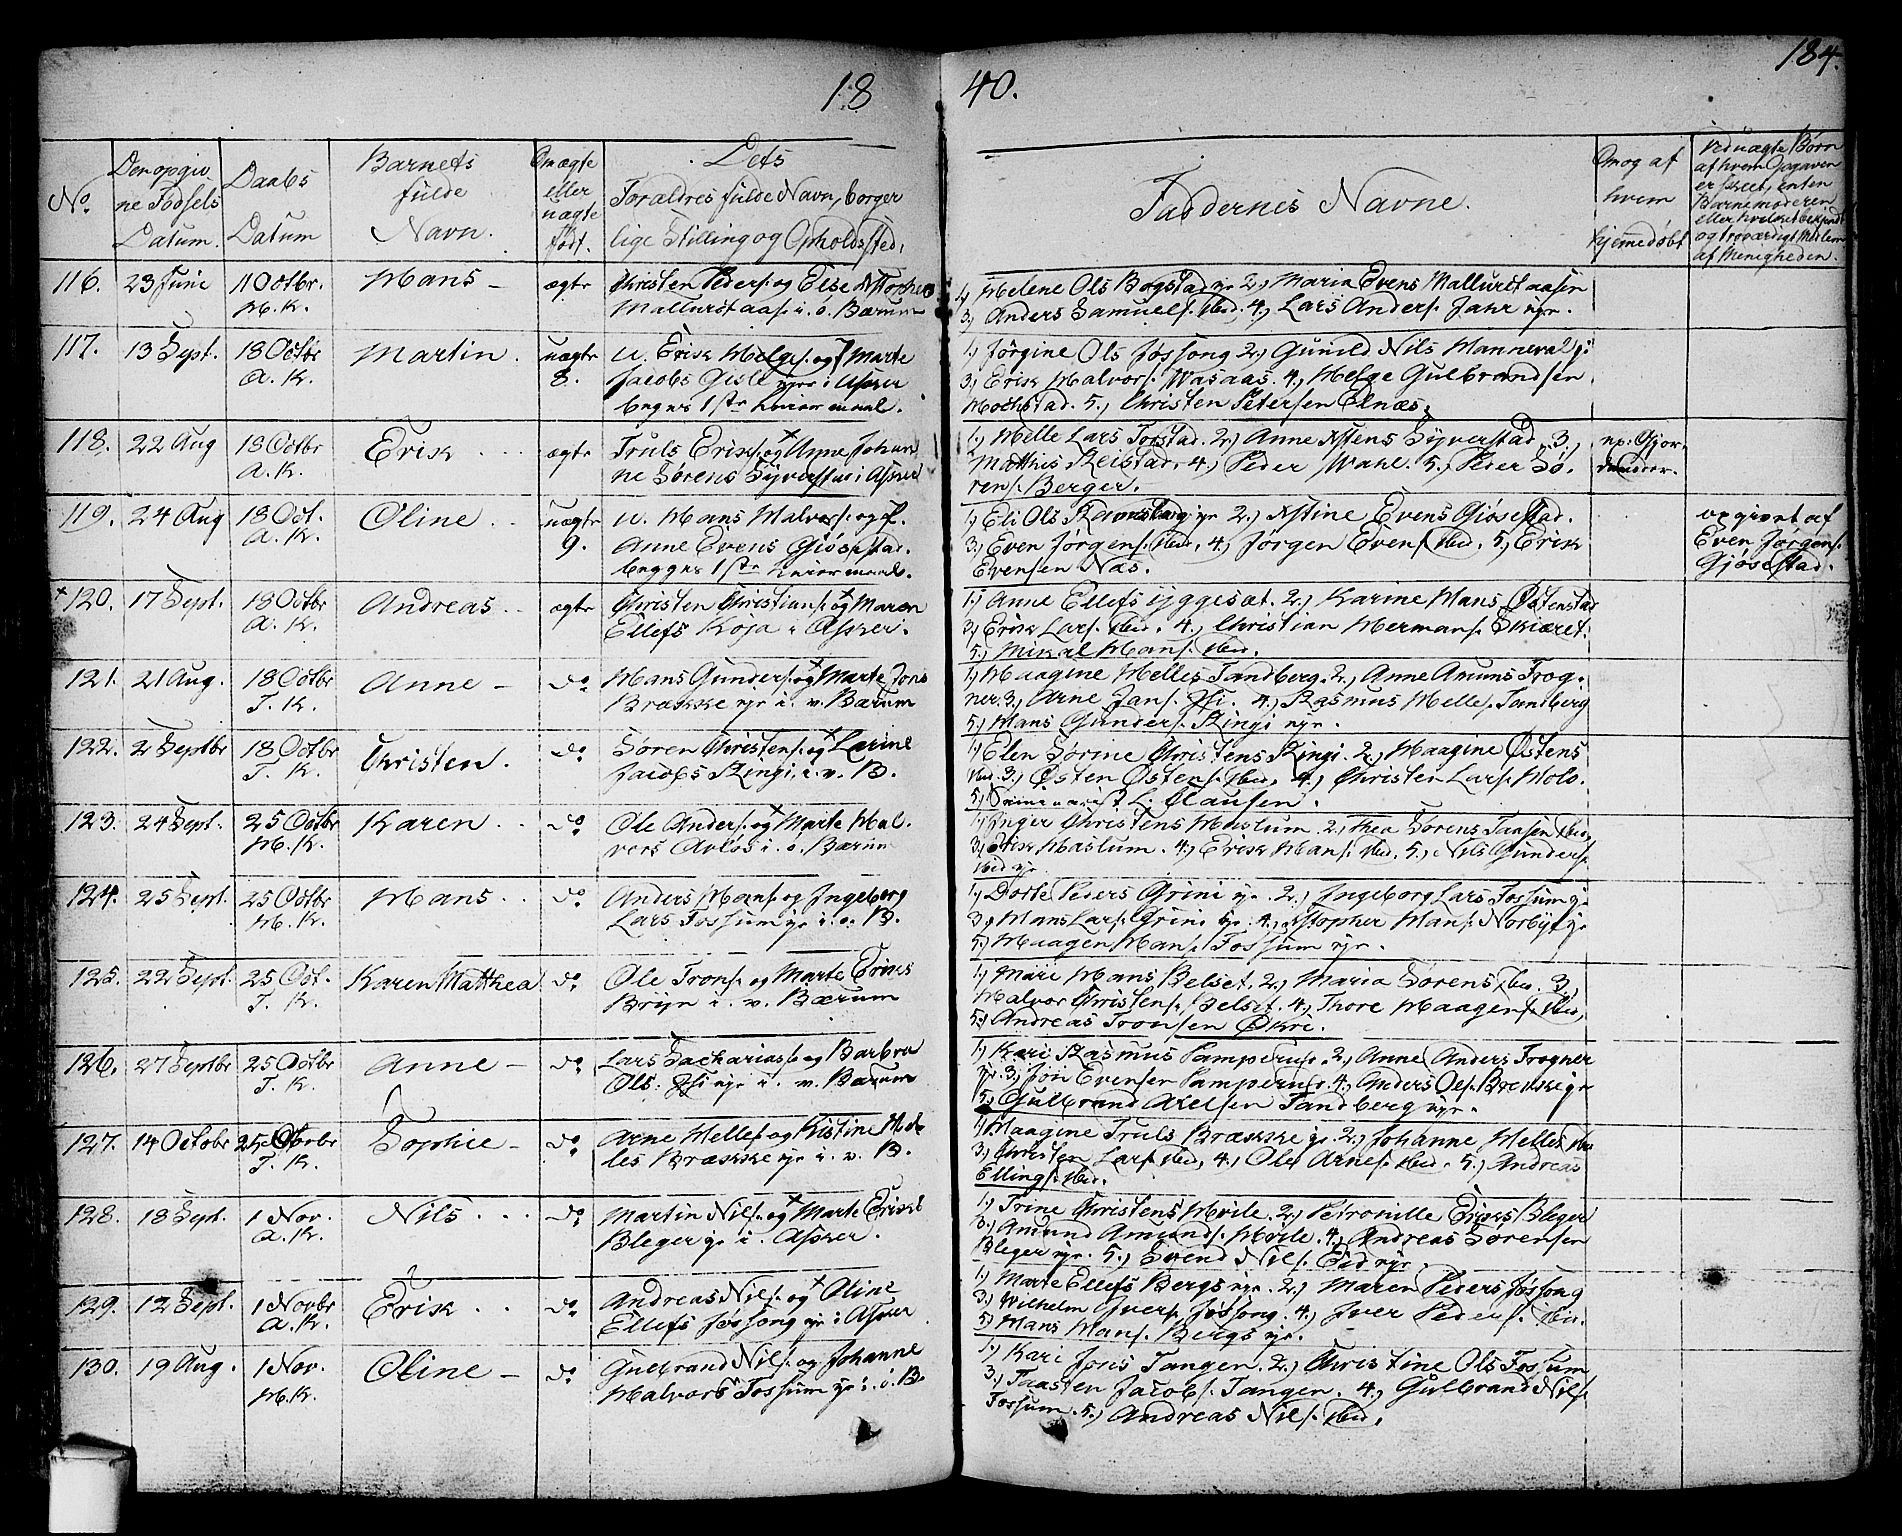 18
40.
184.
No.
Den opgiv
ne Fødsels
Datum.
Daabs
Datum
Barnets
fulde
Navn.
Om ægte
eller
uægte
født.
Dets
Forældres fulde Navn, borger
lige Stilling og Opholdssted.
Faddernes Navne.
Om og af
hvem
hjemmedøbt
Ved uægte Børn
af hvem Opgaven
er skeet, enten
Barnemoderen
eller hvilket bekjendt
og troværdigt Medlem
af Menigheden.
116. 23 Juni 11 Octbr. Hans ægte Christen Peders. og Else
H. K. i. ø. Bærum
1, Helene Ols Bogstad ye 2, Maria Evens
3, Anders Samuels. ibid. 4, Lars Anders. Jahr eje.
117. 13 Sept. 18 Octbr Martin. uægte u. Erik Helges. og f Marte
A. K. 8. Jacobs Gisle eje i Asker
begges 1ste Leiermaal.
1, Jørgine Ols Jøssong 2, Gunild Nils
3, Erik Halvors. Wasaas. 4, Helge Gulbrandsen
Hochstad. 5, Christen Petersen Elnæs.
118. 22 Aug 18 Octbr Erik ægte Truls Eriks. og Anne Johan
A. K. ne Sørens Syverstad i Asker
1, Helle Lars Torstad. 2, Anne Stens Syverstad. 3,
Matthis Reistad. 4, Peder Wahl. 5, Peder Sø.
rens. Berger.
af Gjor
demoder.
119. 24 Aug 18 Oct. Oline uægte u. Hans Halvors. og f.
A. K. 9. Anne Evens Gjøsestad.
begges 1ste Leiermaal.
1, Eli Ols ye 2, Stine Evens Gjøsestad.
3, Even Jørgens. ibid. 4, Jørgen Evens. ibid. 5, Erik
Evensen Næs.
opgivet af
Even Jørgens.
Gjøsestad.
120. 17 Sept. 18 Octbr Andreas ægte Christen Christians. og Maren
A. K. Ellefs Koja i Asker.
1, Anne Ellefs yggesæt. 2, Karine Hans Østenstad
3, Erik Lars. ibid. 4, Christian Hermans. Skiæret.
5, Mikal Hans. ibid.
121. 21 Aug. 18 Octbr Anne do Hans Gunders. og Marte Jons
T. K. Brække eje i. v. Bærum
1, Maagine Helles Tandberg. 2, Anne Amuns Trog
ner. 3, Arne Jans. 4, Rasmus Helles. Tandberg
5, Hans Gunders. Ringi eje.
122. 2 Septbr 18 Octbr Christen. do Søren Christens. og Larine
T. K. Jacobs Ringi, i. v. B.
1, Elen Sørine Christens Ringi. 2, Maagine Østens
ibid. 3, Østen Østens. ibid. 4, Christen Lars. Holo.
5, Seminarist L. Clausen.
123. 24 Sept. 25 Octbr Karen do Ole Anders. og Marte Hal
H. K. vors Avløs i. ø. Bærum
1, Inger Christens Haslum. 2, Thea Sørens ibid.
3, Erik Haslum. 4, Erik Hans. ibid. 5, Nils Gunders.
ibid ye.
124. 25 Sept. 25 Octbr Hans do Anders Hans. og Ingeborg
H. K. Lars Fossum ye i. ø. B.
1, Dorte Peders Grini ye. 2, Ingeborg Lars Fossum ye
3, Hans Lars. Grini ye. 4, Stopher Hans. Norby ye
5, Haagen Hans. Fossum eje.
125. 22 Sept. 25 Oct. Karen Matthea do Ole Trons. og Marte Eriks
T. K. Bryn i. v. Bærum
1, Mari Hans Belset. 2, Maria Sørens ibid. 3,
Halvor Christens. Belset. 4, Thore Haagens. ibid,
5, Andreas Tronsen Økri.
126. 27 Septbr 25 Octbr Anne do Lars Sacharias. og Barbra
T. K. Ols. eje i. v. Bærum
1, Kari Rasmus Pamperud. 2, Anne Anders Trogner
ye. 3, Jon Evensen Pamperud. 4, Anders Ols. Brække ye
5, Gulbrand Axelsen Tandberg eje.
127. 14 Octobr 25 Octobr Sophie do Arne Helles. og Kistine Hel
T. K. les Brække eje i. v. B.
1, Maagine Truls Brække ye 2, Johanne Helles ibid
3, Christen Lars. ibid, 4, Ole Arnes. ibid. 5, Andreas
Ellings. ibid.
128. 18 Sept. 1 Nov. Nils do Martin Nils. og Marte Eriks
A. K. Bleger ye i. Asker.
1, Trine Christens Hvile. 2, Petronille Eriks Bleger
3, Amund Amunds. Hvile. 4, Andreas Sørensen
Bleger eje. 5, Svend Nils. Eid eje.
129. 12 Sept. 1 Novbr Erik do Andreas Nils. og Oline
A. K. Ellefs Jøssong eje i Asker
1, Marte Ellefs Bergs eje. 2, Maren Peders Jøssong
3, Wilhelm Ivers. Jøssong. 4, Iver Peders. ibid.
5, Hans Hans. Bergs eje.
130. 19 Aug. 1 Nov. Oline do Gulbrand Nils. og Johanne
H. K. Halvors Fossum ye i. ø. B.
1, Kari Jons Tangen. 2, Christine Ols Fossum
3, Taasten Jacobs. Tangen. 4, Gulbrand Nils.
Fossum. 5, Andreas Nils. ibid.